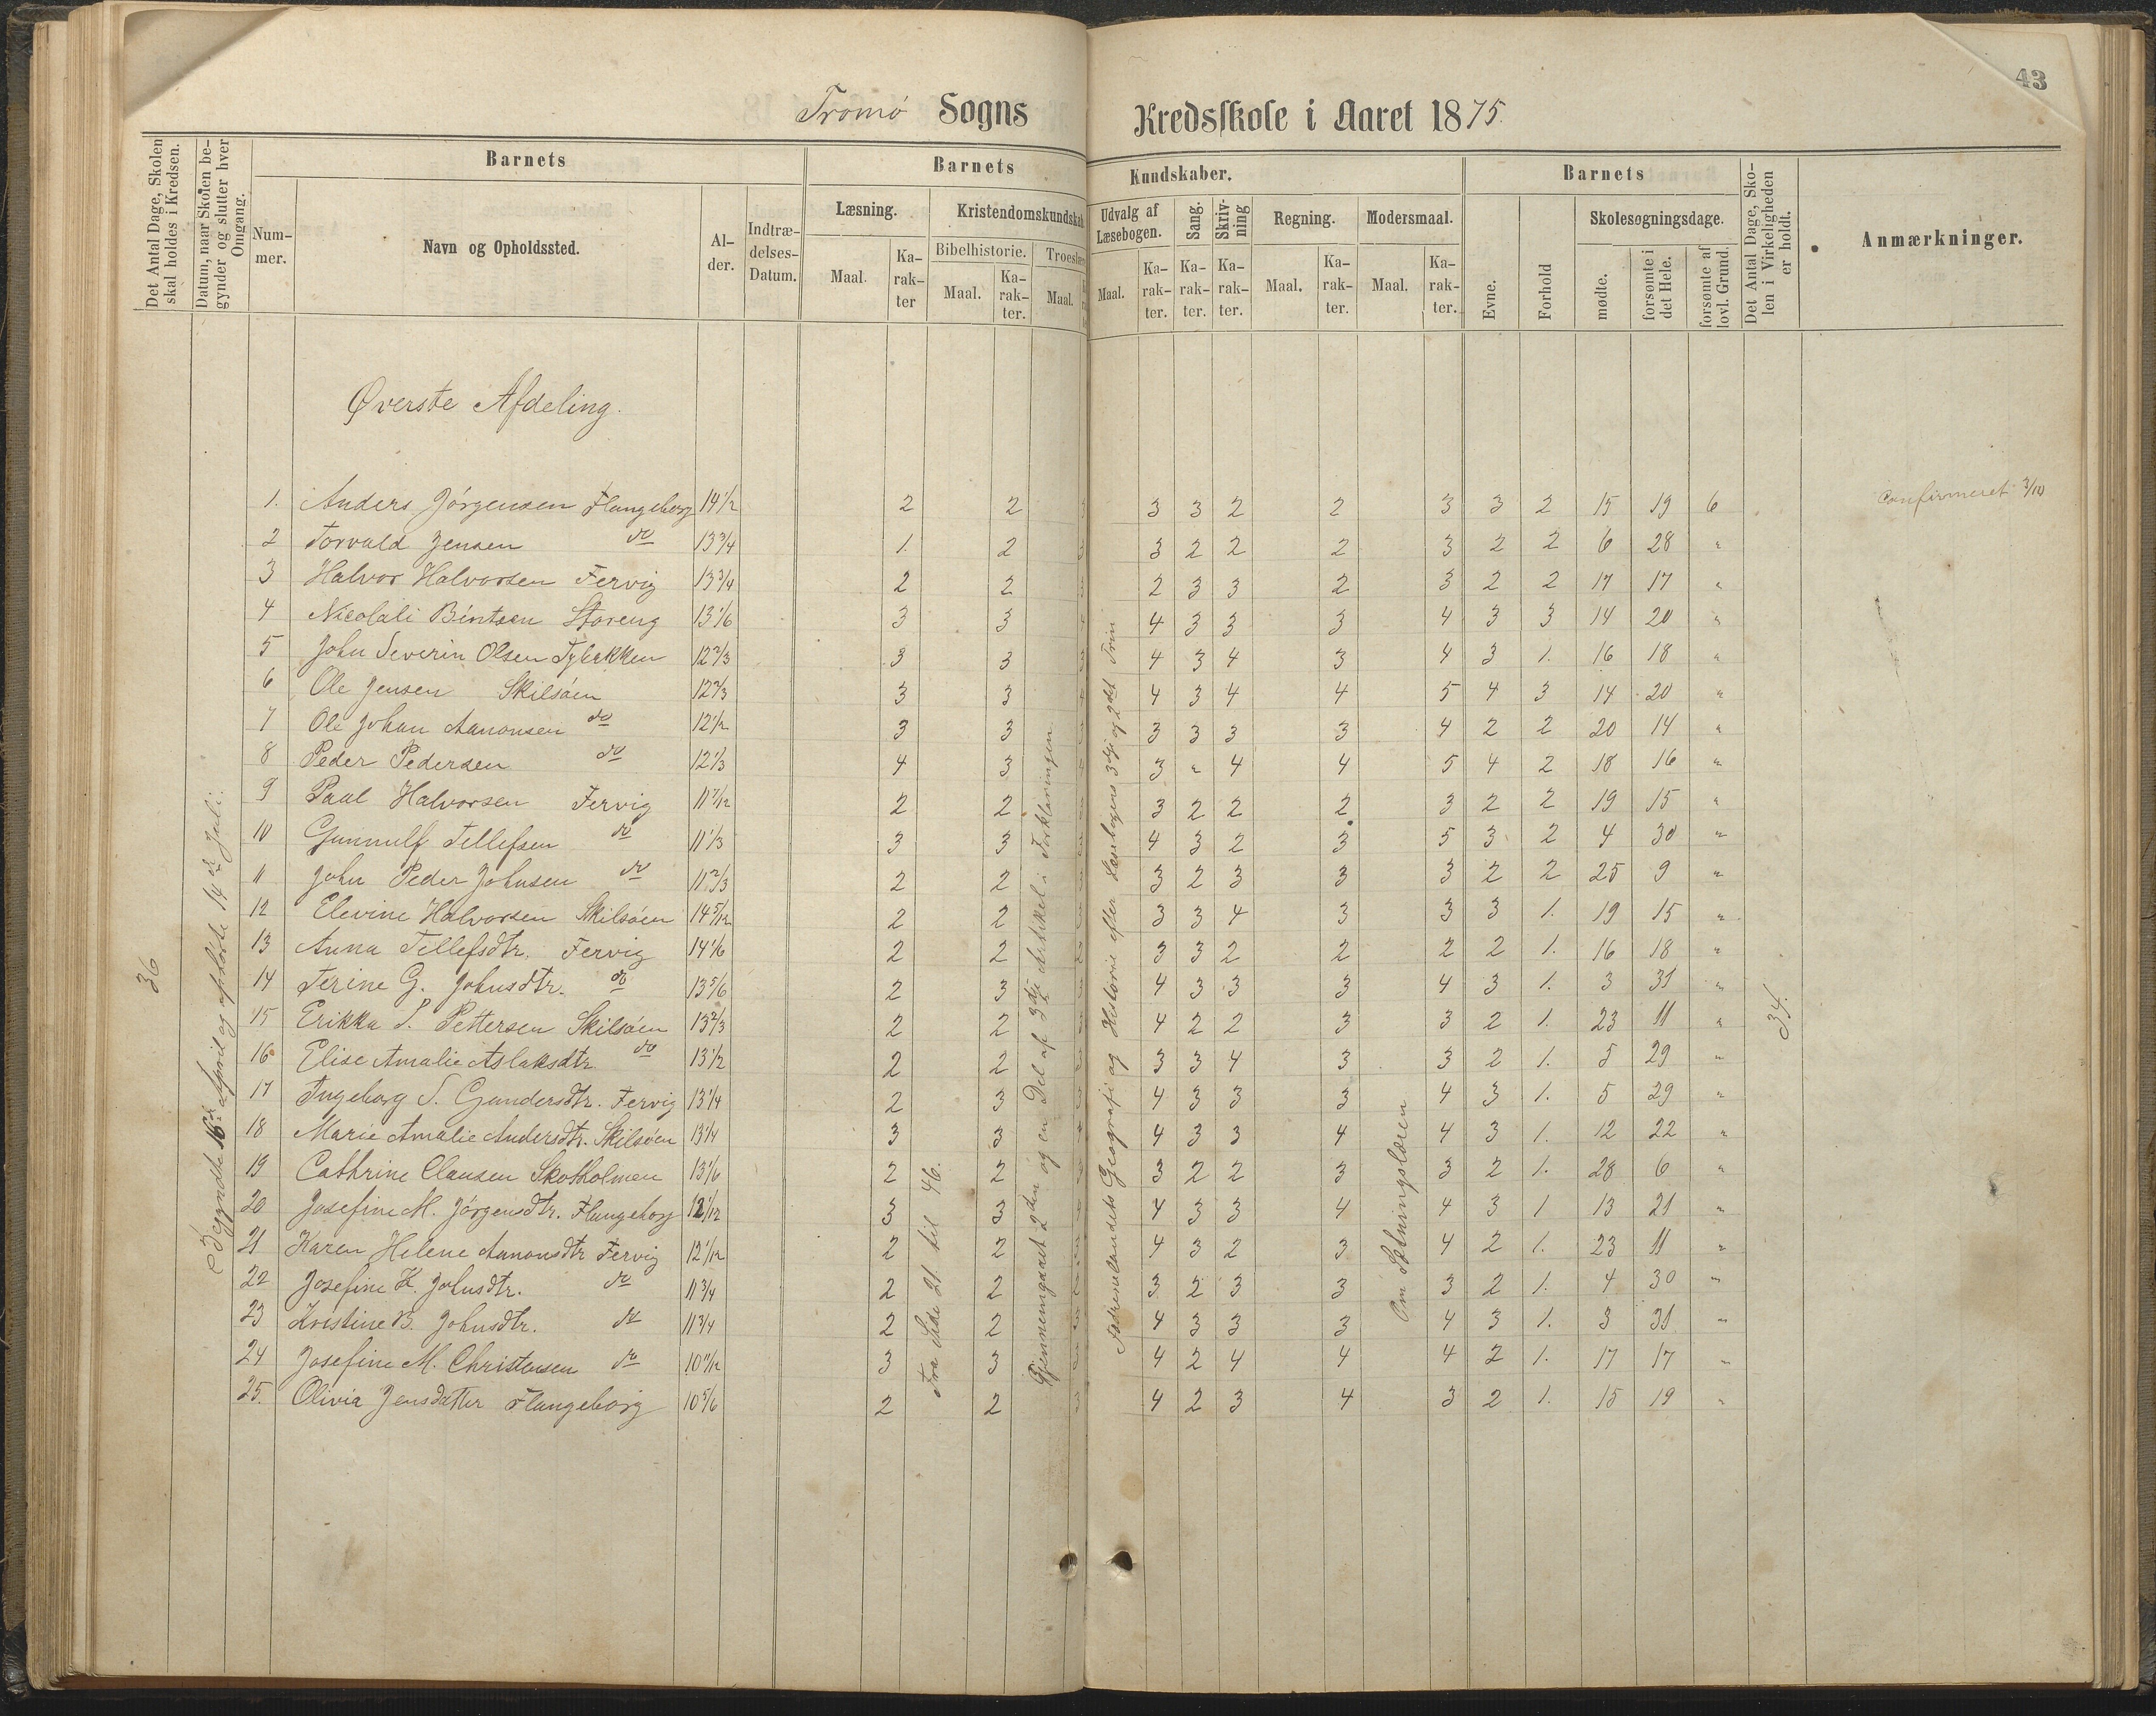 43
Tromø Sogns Kredsskole i Aaret 1875.
Det Antal Dage, Skolen skal holdes i Kredsen.
Datum, naar Skolen begynder og slutter hver Omgang.
Barnets
Nummer.
Navn og Opholdssted.
Alder.
Indtrædelses-Datum.
Barnets Kundskaber.
Læsning.
Maal.
Karakter
Kristendomskundskab
Bibelhistorie.
Maal.
Karakter.
Troeslæ
Maal.
Udvalg af Læsebogen.
Maal.
Karakter.
Sang.
Karakter.
Skrivning
Karakter.
Regning.
Maal.
Karakter.
Modersmaal.
Maal.
Karakter.
Barnets
Evne.
Forhold
Skolesøgningsdage.
mødte.
forsømte i det Hele.
forsømte af lovl. Grund
Det Antal Dage, Skolen i Virkeligheden er holdt.
Anmærkninger.
Øverste Afdeling.
1. Anders Jörgensen Flangeborg 14 1/2 2 2 3 3 3 2 2 3 3 2 15 19 6 Confirmeret 3/10
2 Torvald Jensen do 13 3/4 1. 2 3 3 2 2 2 3 2 2 6 28 "
3 Halvor Halvorsen Fervig 13 3/4 2 2 2 3 3 2 3 2 2 17 17 "
4 Nicolali Bintsen Storeng 13 1/6 3 3 4 3 3 3 4 3 3 14 20 "
5 John Severin Olsen Tybakken 12 2/3 3 3 4 3 4 3 4 3 1. 16 18 "
6 Ole Jensen Skilsöen 12 2/3 3 3 4 3 4 4 5 4 3 14 20 "
7 Ole Johan Aanonsen do 12 1/2 3 3 3 3 3 3 4 2 2 20 14 "
8 Peder Pedersen do 12 1/3 4 3 3 " 4 4 5 4 2 18 16 "
9 Paul Halvorsen Fervig 11 7/12 2 2 3 2 2 2 3 2 2 19 15 "
10 Gunnulf Tellefsen do 11 1/3 3 3 4 3 2 3 5 3 2 4 30 "
11 John Peder Johnsen do 11 2/3 2 2 3 2 3 3 3 2 2 25 9 "
12 Elevine Halvorsen Skilsöen 14 5/12 2 2 3 3 4 3 3 3 1. 19 15 "
13 Anna Tellefsdtr. Fervig 14 1/6 2 2 3 3 2 2 2 2 1. 16 18 "
14 Terine G. Johnsdtr. do 13 5/6 2 3 4 3 3 3 4 3 1. 3 31 "
15 Erikka S. Pettersen Skilsöen 13 2/3 2 2 4 2 2 3 3 2 1. 23 11 "
16 Elise Amalie Aslaksdtr. do 13 1/2 2 2 3 3 4 3 3 2 1. 5 29 "
17 Ingeborg S. Gundersdtr. Fervig 13 1/4 2 3 4 3 3 3 4 3 1. 5 29 "
18 Marie Amalie Andersdtr. Skilsöen 13 1/4 3 3 4 3 3 4 4 3 1. 12 22 "
19 Cathrine Clausen Skotholmen 13 1/6 2 2 3 2 2 3 3 2 1. 28 6 "
20 Josefine M. Jörgensdtr. Flangeborg 12 1/12 3 3 4 3 3 4 4 3 1 13 21 "
21 Karen Helene Aanonsdtr Fervig 12 1/12 2 2 4 3 2 3 4 2 1. 23 11 "
22 Josefine K. Johnsdtr. do 11 3/4 2 2 3 2 3 3 3 2 1. 4 30 "
23 Kristine B. Johnsdtr. do 11 3/4 2 2 4 3 3 3 4 3 1. 3 31 "
24 Josefine M. Christensen do 10 11/12 3 3 4 2 4 4 4 2 1. 17 17 "
25. Olivia Jensdatter Flangeborg 10 5/6 2 2 3 4 2 3 4 3 2 1. 15 19 "
36
Begyndte 16de April og ophörte 14de Juli.
Fra Side 21 til 46.
Gjennemgaaet 2den og en Del af 3die Artikel i Forklaringen
Fædrenelandets Geografi og Historie efter Læsebogens 3die og 2det Trin
Om Sætningslæren
34.